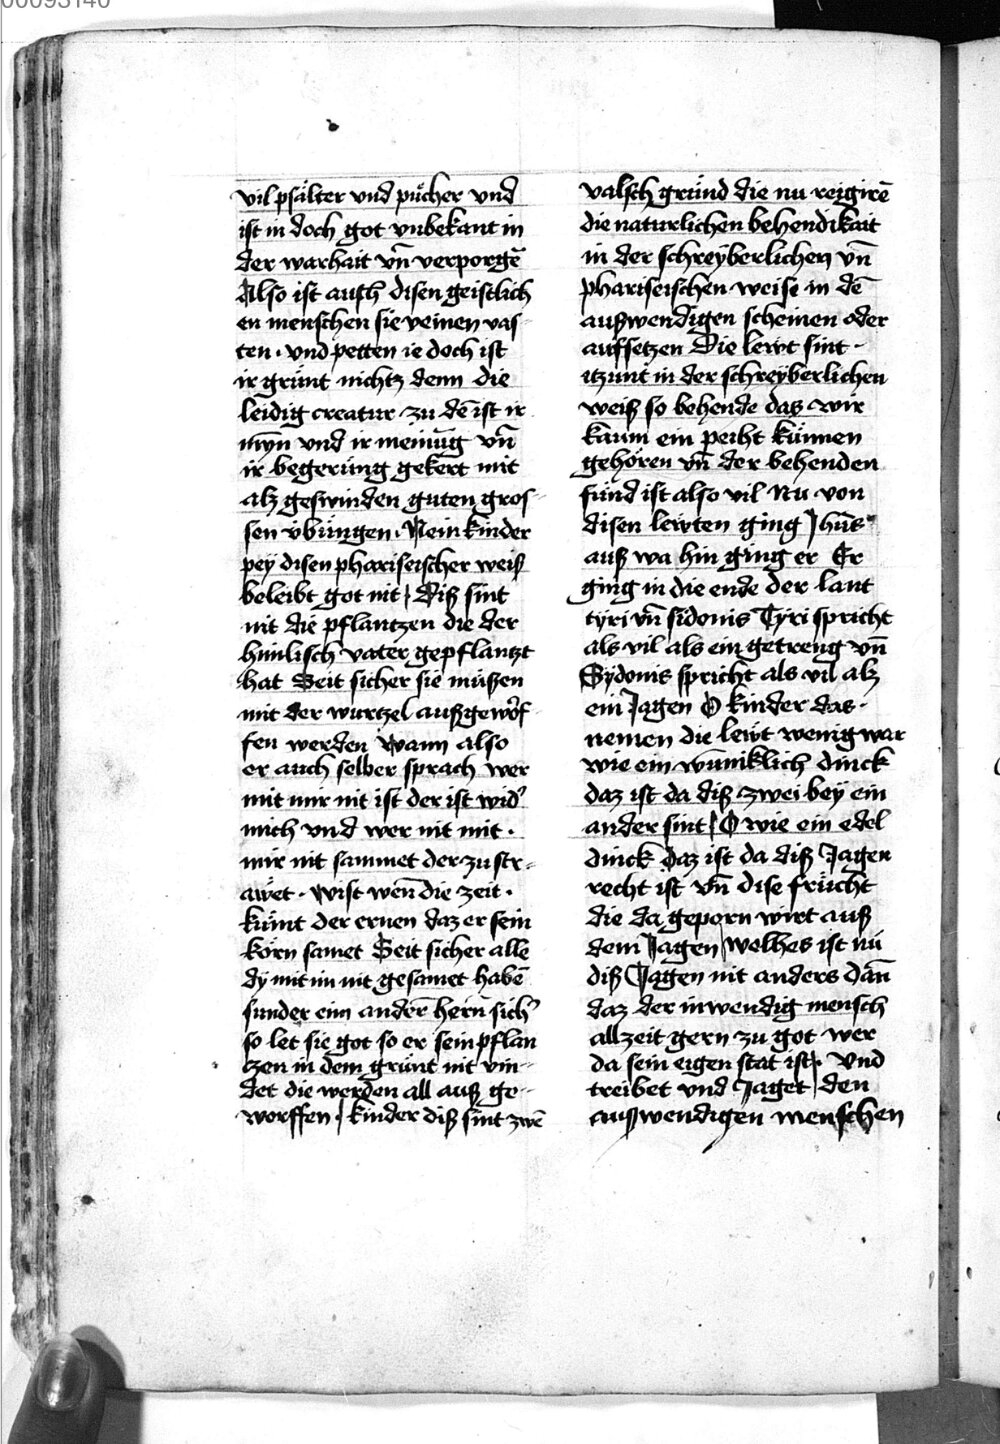 00093140
vil psälter vnd pücher vnd
ist in doch got vnbekant in
der warhait vn̄ verporgē
Also ist auch disen geistlich
en menschen sie veinen vas-
ten · vnd petten ie doch ist
ir grünt nichtz denn die
leidig creatur zu dē ist ir
myn vnd ir meinūg vn̄
ir begerüng gekert mit
alz geswinden guten gros-
sen übüngen · Mein kinder
pey disen phariseischer weiß
beleibt got nit Diß sint
nit die pflantzen die der
himlisch vater gepflantzt
hat Seit sicher sie müßen
mit der wurtzel außgeworf
fen werden Wann also
er auch selber sprach wer
mit mir nit ist der ist wid'
mich vnd wer nit mit ·
mir nit sammet der zu str-
äwet · Wist wen̄ die zeit ·
kümt der ernen daz er sein
körn samet Seit sicher alle
dy mit im nit gesamet habē
sunder ein anderē hern̄ sich'
so let sie got so er sein pflan
zen in dem grünt nit vin-
det die werden all auß ge-
worffen · kinder diß sint zwē
valsch gründ die nu reigirē
die naturlichen behendikait
in der schreyberlichen vn̄
phariseischen weise in dē
außwendigen scheinen oder
aufsetzen Die lewt sint ·
itzunt in der schreyberlichen
weiß so behende das wir
kaum ein peiht künnen
gehören vn̄ der behenden
fünd ist also vil Nu von
disen lewten ging Jhūs
auß wa hin ging er Er
ging in die ende der lant
tyri vn̄ sidonis Tyri spricht
als vil als ein getreng vn̄
Sydonis spricht als vil alz
ein Jagen O kinder das ·
nemen die lewt wenig war
wie ein wūniklich dinck
daz ist da diß zwei bey ein
ander sint O wie ein edel
dinck daz ist da diß Jagen
recht ist vn̄ dise frücht
die da geporn wirt auß
dem Jagen welhes ist nü
diß Jagen nit anders dan̄
daz der inwendig mensch
allzeit gern zu got wer
da sein eigen stat ist · vnd
treibet vnd Jaget den
außwendigen menschen